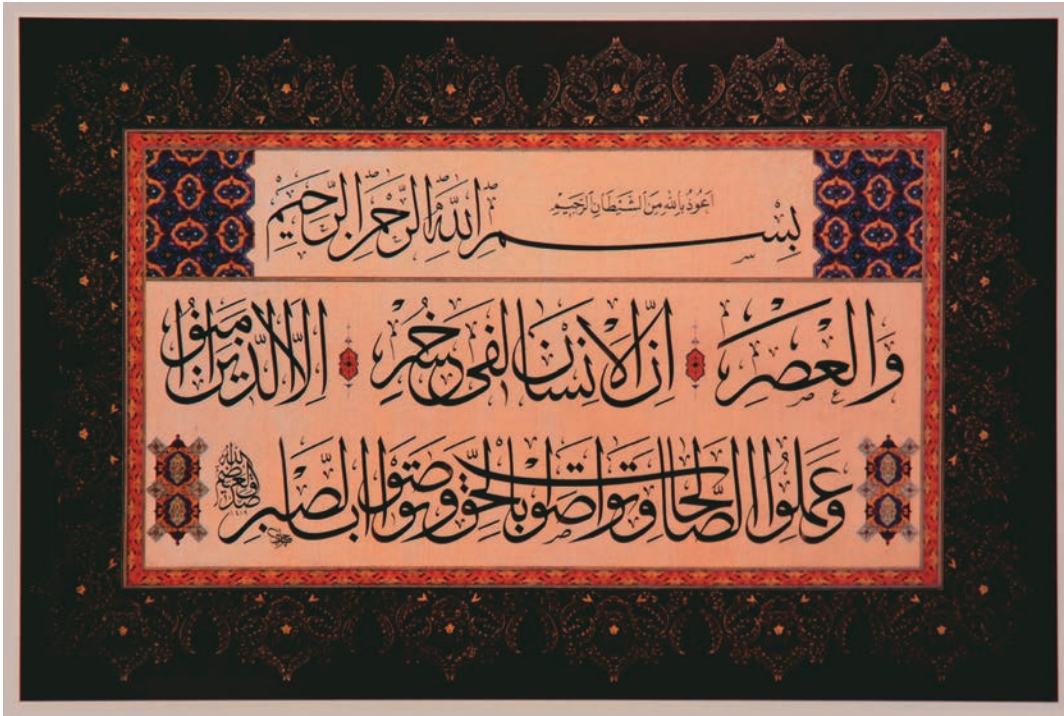 اعوذ بالله من الشيطان الرجيم
بِسْمِ اللهِ الرَّحْمٰنِ الرَّحِيْمِ
وَالْعَصْرِ اِنَّ الْاِنْسَانَ لَفِي خُسْرٍ اِلَّا الَّذِينَ اٰمَنُوا
وَعَمِلُوا الصَّالِحَاتِ وَتَوَاصَوْا بِالْحَقِّ وَتَوَاصَوْا بِالصَّبْرِ
صدق الله العظيم